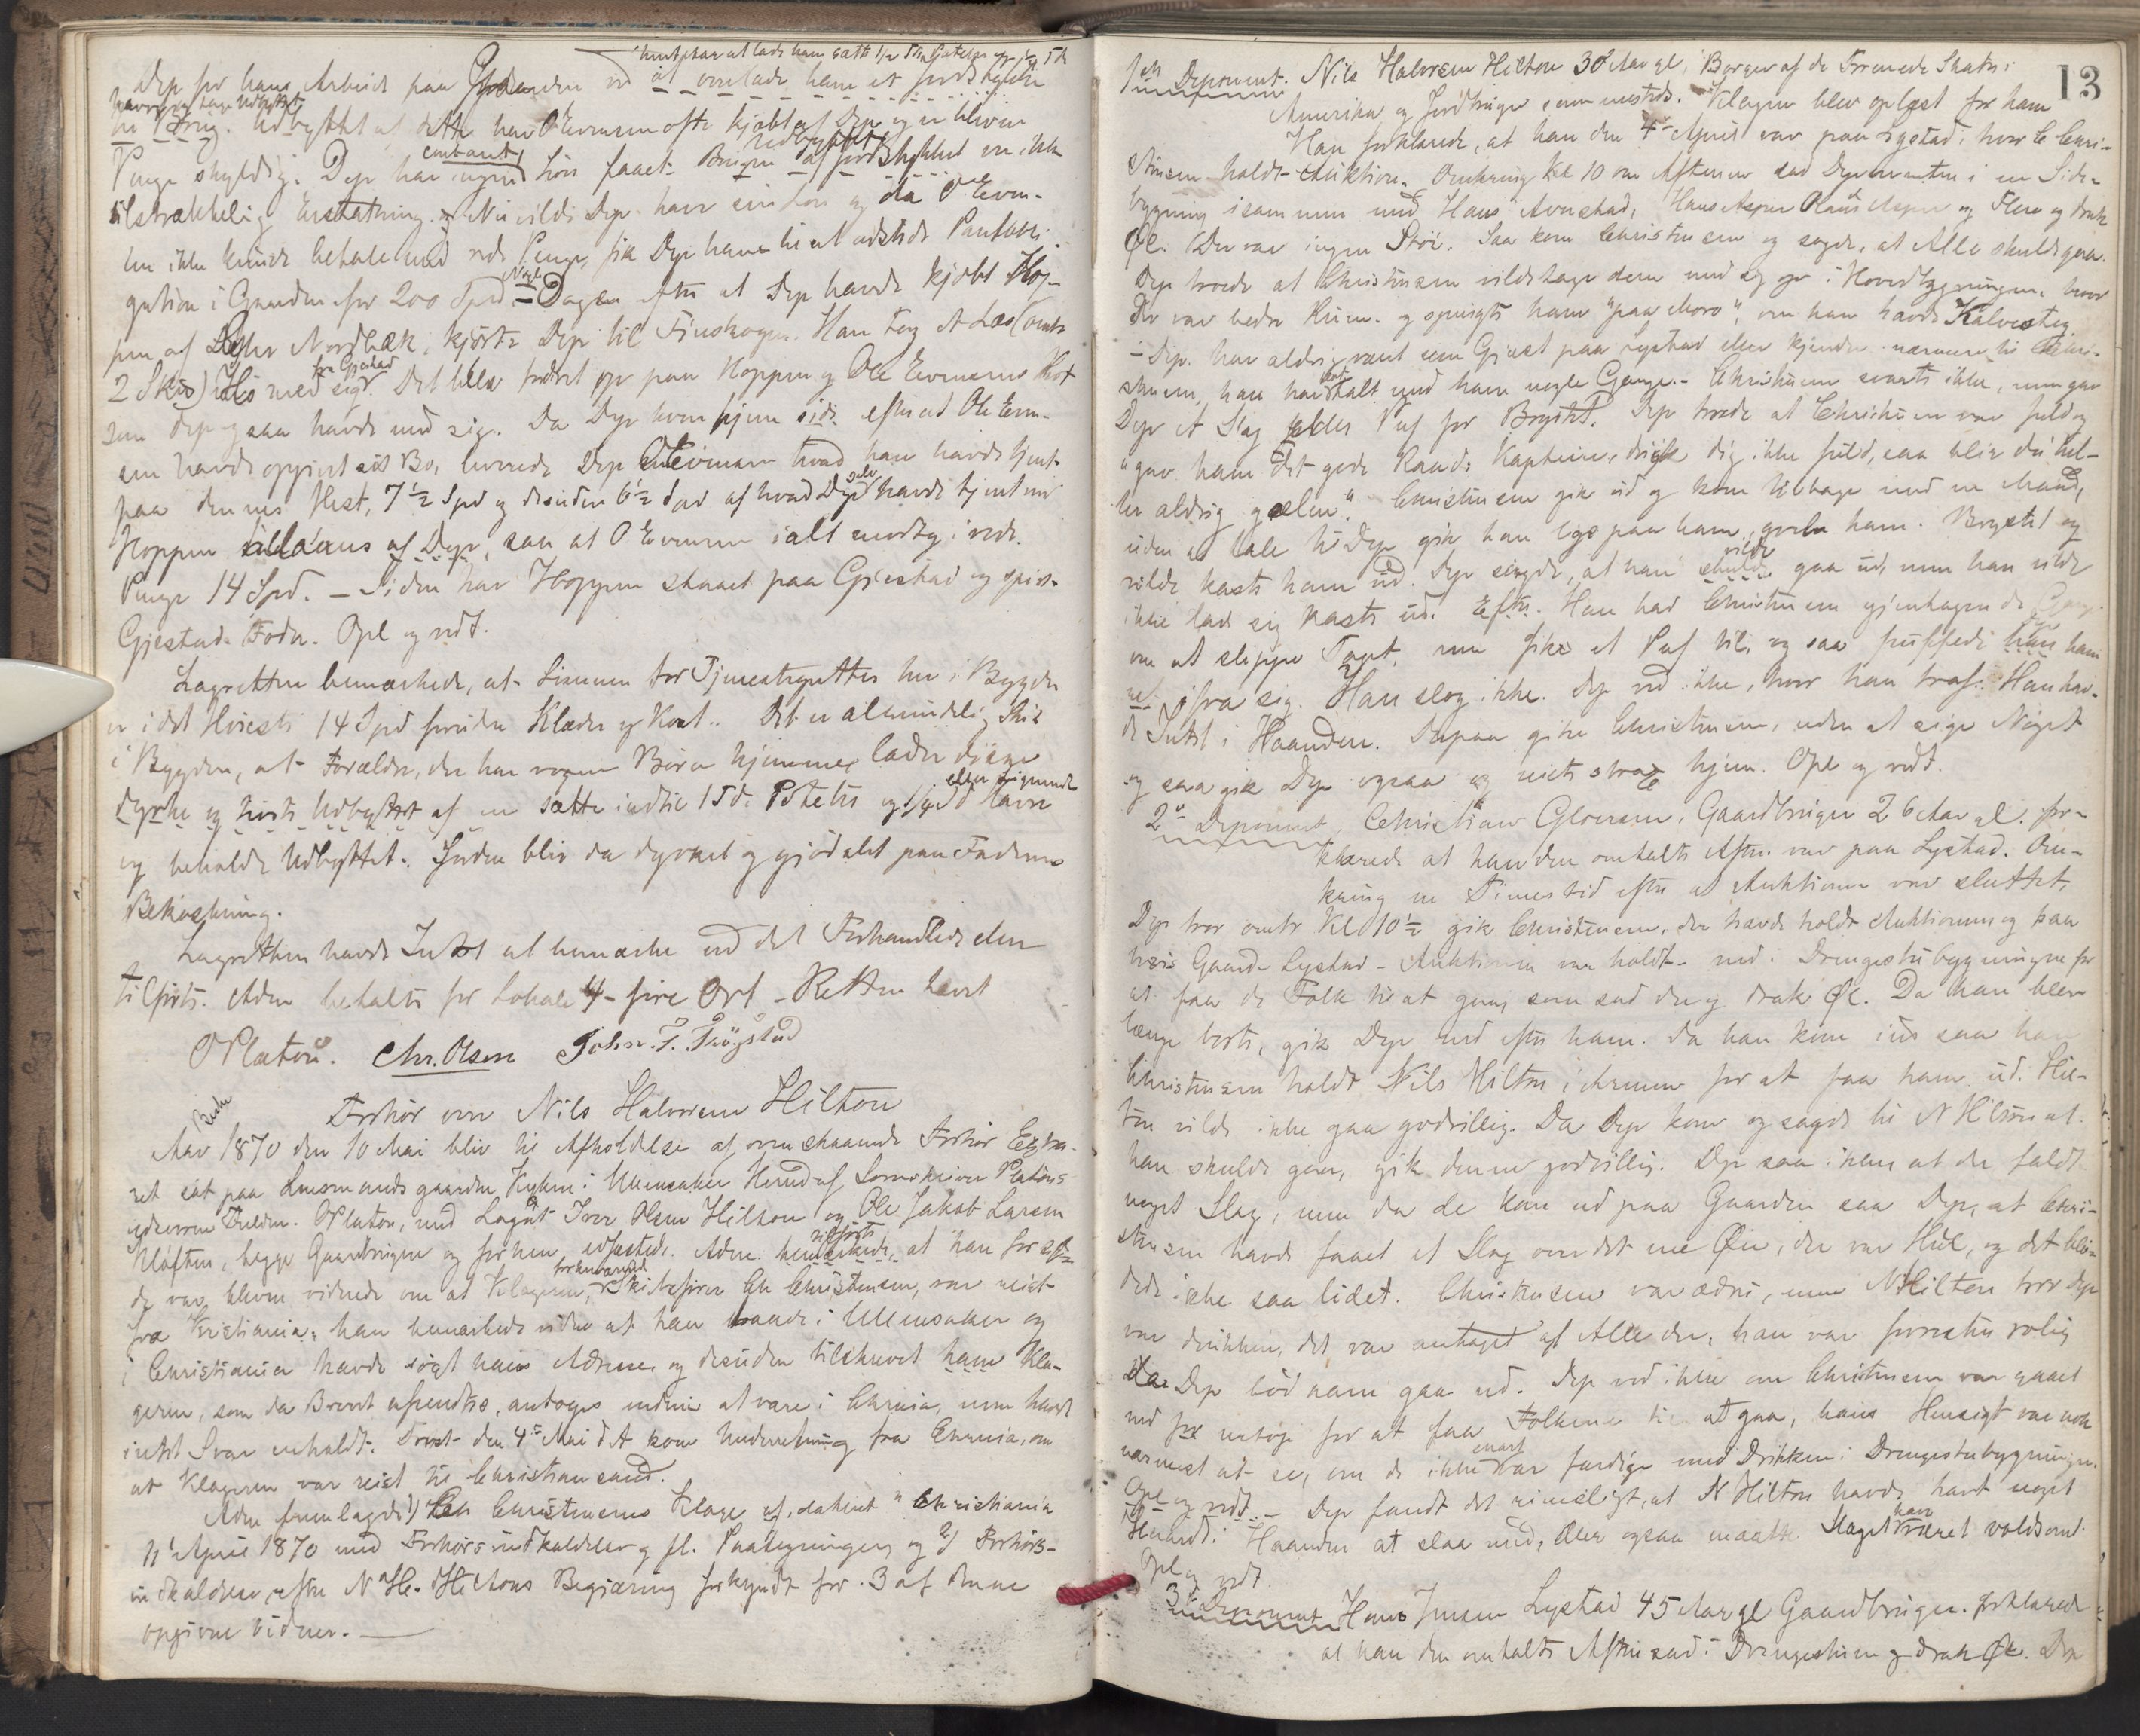 Dep for hans Arbeide paa Gaarden ved at overlade ham et Jordstykke
til Brug. Udbyttet af dette har O Evensen ofte kjøbt af Dep og er bleven
Penge skyldig. Dep har ingen contant Løn faaet. Brugen af Jordstykket er ikke
tilstrækkelig Erstatning. Nu vilde Dep have sin Løn og da O Even-
sen ikke kunde betale med rede Penge, fik Dep ham til at udstede Pantobli-
gation i Gaarden for 200 Spd. Dagen efter at Dep havde kjøbt Hop-
pen af Nordbæk, kjørte Dep til Finskogen. Han tog et Læs (omtr
2 Skd) Hø med sig fra Gjestad. Det blev fodret op paa Hoppen og Ole Evensens Hest
som Dep ogsaa havde med sig. Da Dep kom hjem efter at Ole Even-
sen havde opgivet sit Bo, leverede Dep O Evensen hvad han havde tjent
paa dennes Hest, 7½ Spd og desuden 6½ Spd af hvad Dep selv havde tjent med
Hoppen tillaans af Dep, saa at O Evensen ialt modtog i rede
Penge 14 Spd. – Siden har Hoppen staaet paa Gjestad og spist
Gjestads Foder. Opl og vedt.
Lagretten bemærkede, at Lønnen for Tjenestegutter her i Bygden
er i det Høieste 14 Spd foruden Klæder og Kost. Det er almindelig Skik
i Bygden, at Forældre, der har voxne Børn hjemme, lader disse
dyrke og høste Udbyttet af en sætte indtil 1 Td. Poteter og
og beholde Udbyttet. Jorden bliver da dyrket og gjødslet paa Faderens
Bekostning.
Lagretten havde Intet at bemærke ved det Forhandlede eller
tilføie. Adm betalte for Lokale 4 – fire Ort – Retten hævet
OPlatou. Chr. Olsen John. F. Trøgstad
Forhør over Nils Halvorsen Hilton
Aar 1870 den 10 Mai blev til Afholdelse af ovenstaaende Forhør Extra-
ret sat paa Lensmandsgaarden i Ullensaker Herred af Sorenskriver Platous
edsvorne Fuldm. OPlatou, med Lagret Iver Olsen Hilton og Ole Jakob Larsen
Kløften, begge Gaardbrugere og forhen edfæstede. Adm. tilførte, at han
var bleven vidende om at Klageren, Skibsfører Chr Christensen, var reist
fra Kristiania; han bemærkede videre at han baade i Ullensaker og
i Christiania havde søgt hans Adresse og desuden tilskrevet ham Kla-
geren, som da Brevet afsendtes, antoges endnu at være i Chrnia, men havde
intet Svar erholdt. Først den 4de Mai d A kom Underretning fra Chrnia, om
at Klageren var reist til Christiansand.
Adm fremlagde 1) Chr Christensens Klage af, dateret "Christiania
11 April 1870 med Forhørsindkaldelse og fl. Paategninger, og 2) Forhørs-
indkaldelse, efter N H. Hiltons Begjæring forkyndt for 3 af denne
opgivne Vidner. –
13
1ste Deponent. Nils Halvorsen Hilton 30 Aar gl, Borger af de Forenede Stater i
Amerika og Jordbruger sammesteds. Klagen blev oplæst for ham
Han forklarede, at han den 4de April var paa Lystad, hvor C Chri-
stensen holdt Auktion. Omkring Kl 10 om Aftenen sad Deponenten i en Side-
bygning isammen med Hans Avnstad, og Flere og drak
Øl. Der var ingen Støi. Saa kom Christensen og sagde, at Alle skulde gaa.
Dep troede at Christensen vilde tage dem med sig op i Hovedbygningen, hvor
der var bedre Rum, og spurgte ham "paa Moro", om han havde Kalvesteg
– Dep. har aldrig været som Gjest paa Lystad eller kjender nærmere til Chri-
stensen, han har talt med ham nogle Gange. – Christensen svarte ikke, men gav
Dep et Slag eller Puf for Brystet. Dep troede at Christensen var fuld og
"gav ham det gode Raad: Kaptein, drik dig ikke fuld, saa bliver du hel-
ler aldrig galen." Christensen gik ud og kom tilbage med en Mand,
uden at tale til Dep gik han lige paa ham, greb ham i Brystet og
vilde kaste ham ud. Dep sagde, at han vilde gaa ud, men han vilde
ikke lade sig kaste ud. Han bad Christensen gjentagende Gange
om at slippe Taget, men fik et Puf til, og saa puffede han ham
ifra sig. Han slog ikke. Dep ved ikke, hvor han traf. Han hav-
de Intet i Haanden. Derpaa gik Christensen, uden at sige Noget
og saa gik Dep ogsaa og reiste strax hjem. Opl og vedt.
2den Deponent, Christian Gloersen, Gaardbruger 26 Aar gl. for-
klarede at han den omtalte Aften var paa Lystad. Om-
kring en Times tid efter at Auktionen var sluttet,
Dep tror omtr Kl 10½ gik Christensen, der havde holdt Auktionen og paa
hvis Gaard Lystad Auktionen var holdt ned i Drengestubygningen for
at faa de Folk til at gaa, som sad der og drak Øl. Da han blev
længe borte, gik Dep ned efter ham. Da han kom ind saa han
Christensen holdt Nils Hilton i Armen for at faa ham ud. Hil-
ton vilde ikke gaa godvillig. Da Dep kom og sagde til N Hilton at
han skulde gaa, gik denne godvillig. Dep saa ikke at der faldt
noget Slag, men da de kom ud paa Gaarden saa Dep, at Chri-
stensen havde faaet et Slag over det ene Øie, der var Hul, og det blø-
dede ikke saa lidet. Christensen var ædru, men N Hilton tror Dep
var drukken, det var antaget af Alle der; han var forresten rolig
da Dep bød ham gaa ud. Dep ved ikke om Christensen var gaaet
ned for at faa Folkene til at gaa, hans Hensigt var nok
nærmest at se, om de ikke snart var færdige med Drikken i Drengestubygningen.
Opl og vedt. – Dep fandt det rimeligt, at N Hilton havde havt noget
Haardt i Haanden at slaa med, eller ogsaa maatte Slaget have været voldsomt.
Opl og vedt.
3die Deponent Hans Jensen Lystad 45 Aar gl Gaardbruger. forklarede
at han den omtalte Aften sad i Drengestuen og drak Øl. Der